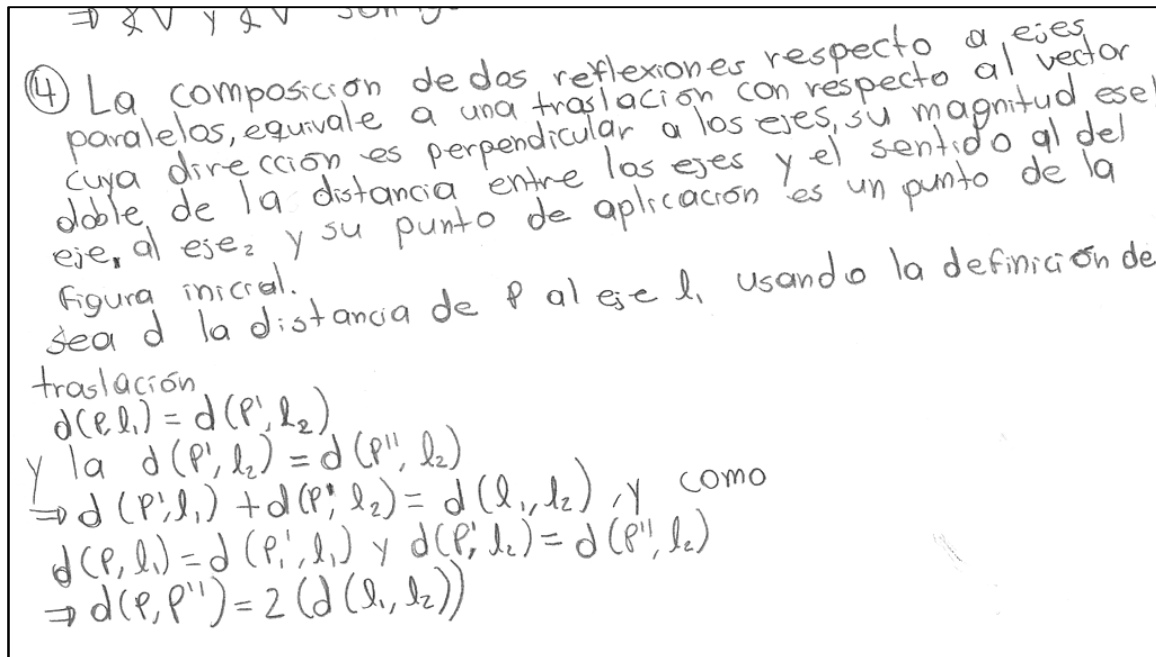 ⇒ ∡V y ∡V son
④ La composición de dos reflexiones respecto a ejes
paralelos, equivale a una traslación con respecto al vector
cuya dirección es perpendicular a los ejes, su magnitud es el
doble de la distancia entre los ejes y el sentido al del
eje₁ al eje₂ y su punto de aplicación es un punto de la
figura inicial.
sea d la distancia de P al eje l₁ usando la definición de
traslación
d(P,l₁) = d(P',l₂)
y la d(P',l₂) = d(P'',l₂)
⇒ d(P',l₁) + d(P',l₂) = d(l₁,l₂), y como
d(P,l₁) = d(P,',l₁) y d(P',l₂) = d(P'',l₂)
⇒ d(P,P'') = 2(d(l₁,l₂))